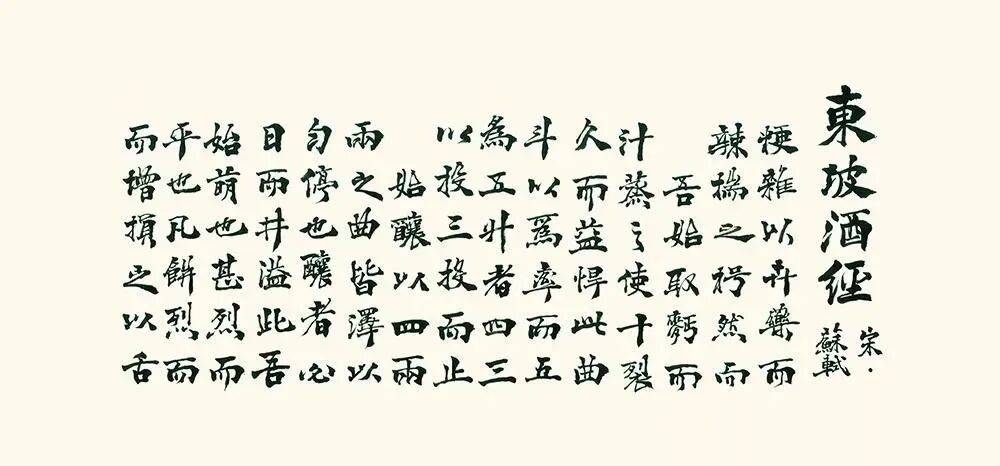 東坡酒經
宋·
蘇軾
粳雜以卉藥而
辣揣之枵然而
吾始取麪而
汁蒸之使十裂
久而益悍此曲
斗以爲率而五
為五升者四三
以投三投而止
始釀以四兩
兩之曲皆澤以
匀停也釀者必
日而井溢此吾
始萌也甚烈而
平也凡餅烈而
而增損之以舌